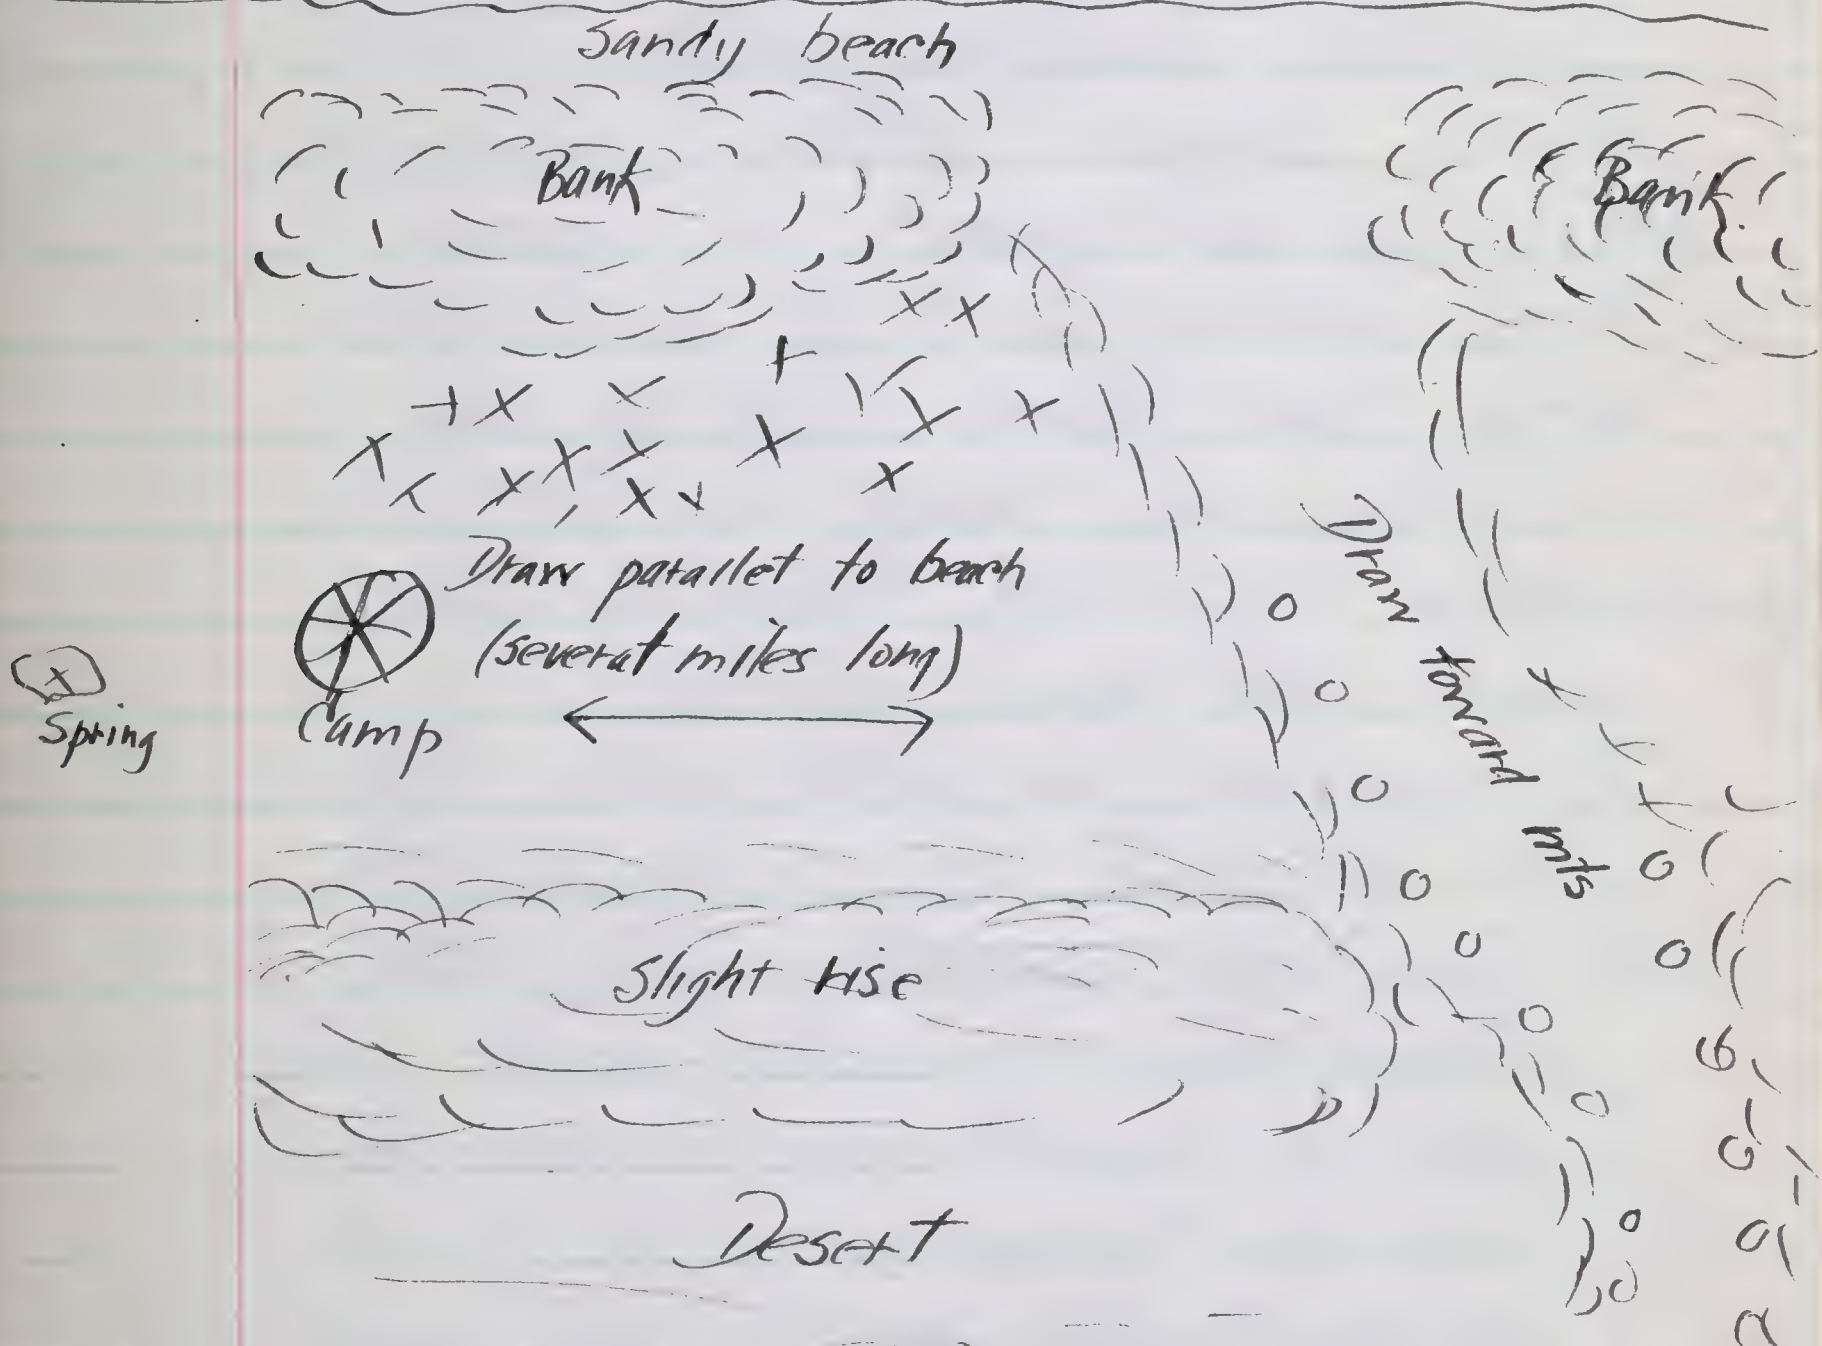 Sandy beach
Bank
Bank
Draw parallel to beach
(several miles long)
Camp
Spring
Draw toward mts
Slight rise
Desert